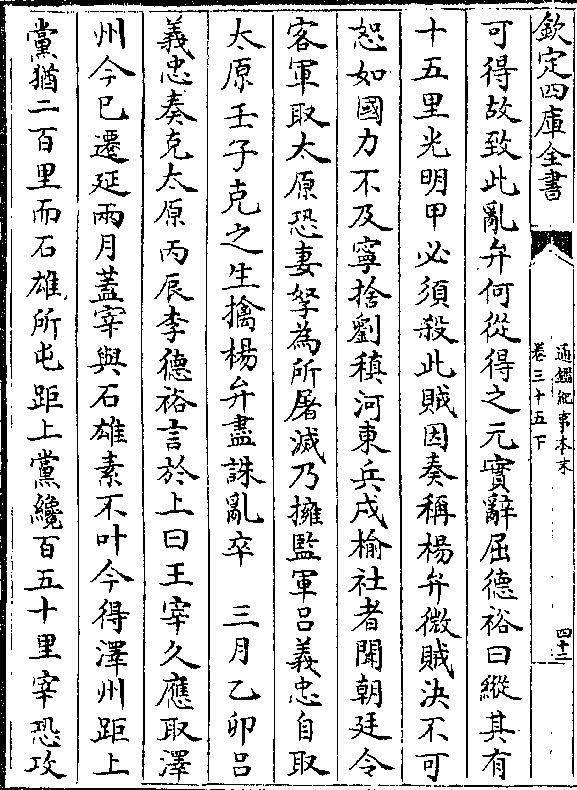 欽定四庫全書
通鑑紀事本末
卷三十五下
四十三
可得故致此亂弁何從得之元實辭屈德裕曰縱其有
十五里光明甲必須殺此賊因奏稱楊弁微賊決不可
恕如國力不及寧捨劉稹河東兵戍榆社者聞朝廷令
客軍取太原恐妻孥為所屠滅乃擁監軍吕義忠自取
太原壬子克之生擒楊弁盡誅亂卒 三月乙卯吕
義忠奏克太原丙辰李德裕言於上曰王宰久應取澤
州今已遷延兩月蓋宰與石雄素不叶今得澤州距上
黨猶二百里而石雄所屯距上黨纔百五十里宰恐攻